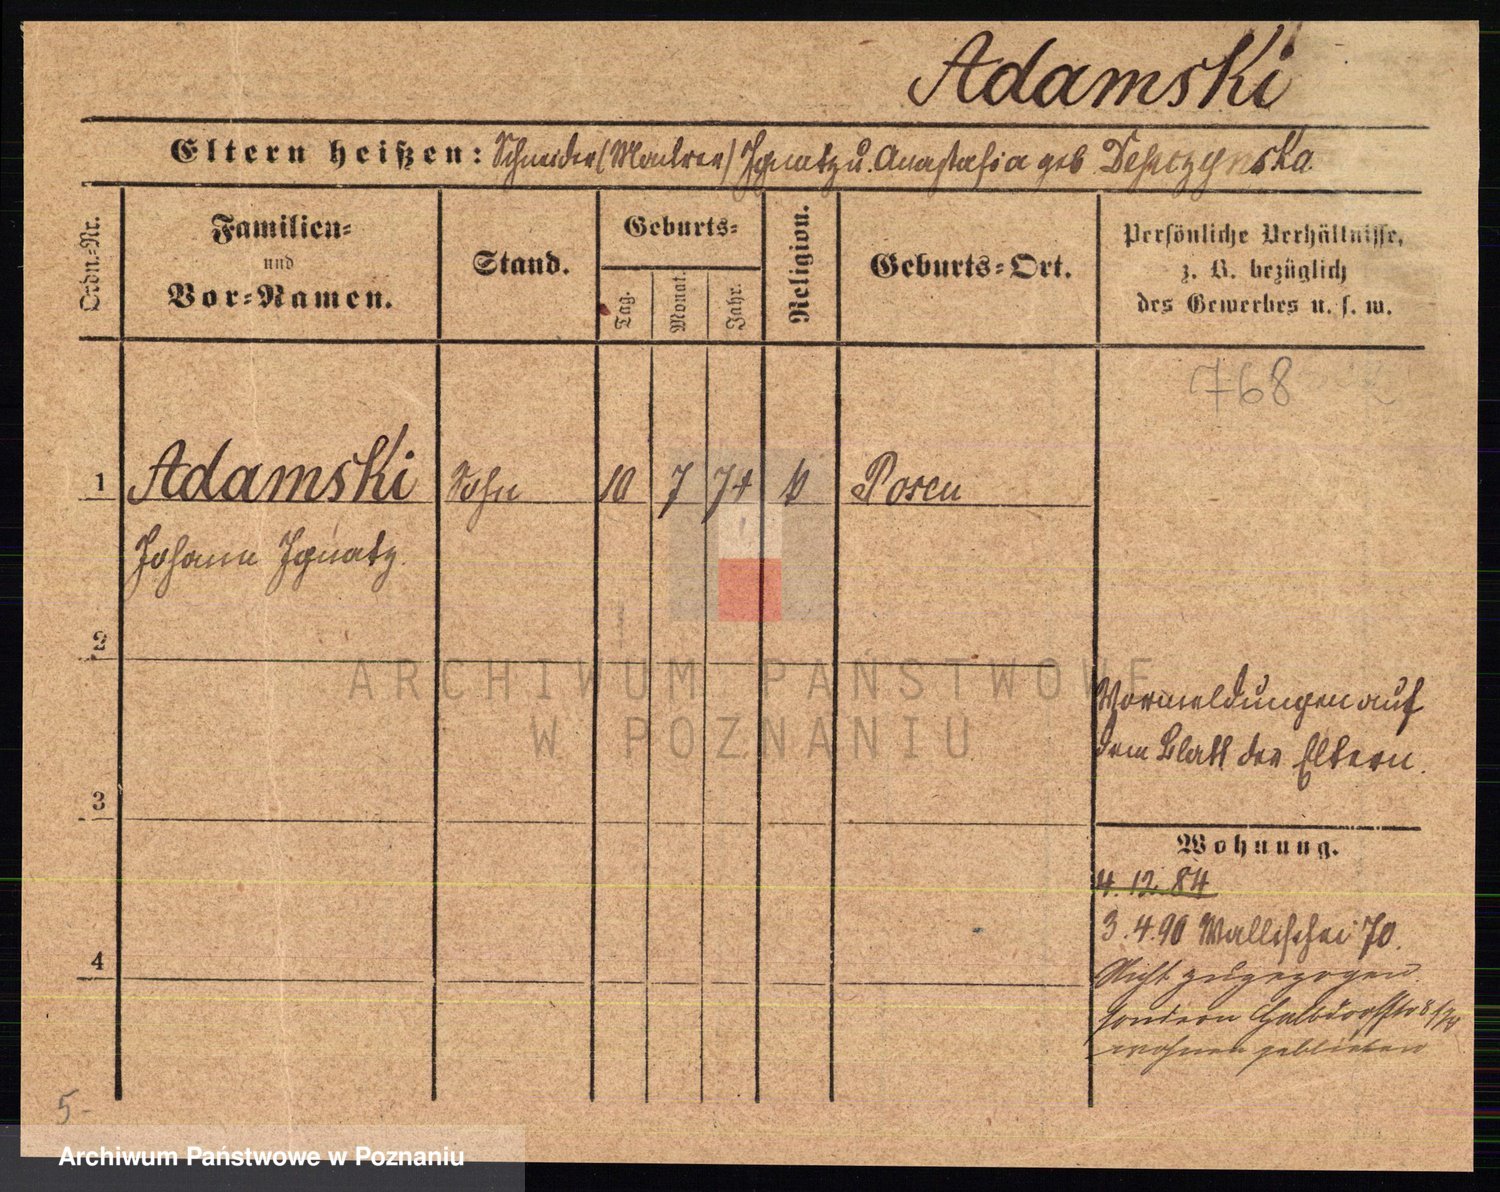 Adamski
Eltern heißen: Schneider (Maurer) Ignatz u. Anastasia geb
Ordn.-Nr.
Familien-
und
Vor-Namen.
Stand.
Geburts-
Tag.
Monat.
Jahr.
Religion.
Geburts-Ort.
Persönliche Verhältnisse,
z. B. bezüglich
des Gewerbes u. s. w.
768
1 Adamski Sohn 10 7 74 Posen
Johann Ignatz.
2
ARCHIWUM PAŃSTWOWE
W POZNANIU
Vormeldungen auf
dem Blatt der Eltern.
3
Wohnung.
4. 12. 84
3. 4. 90 Wallischei 70.
4
Nicht zugezogen
sondern Halbdorfstr
wohnen geblieben
5-
Archiwum Państwowe w Poznaniu